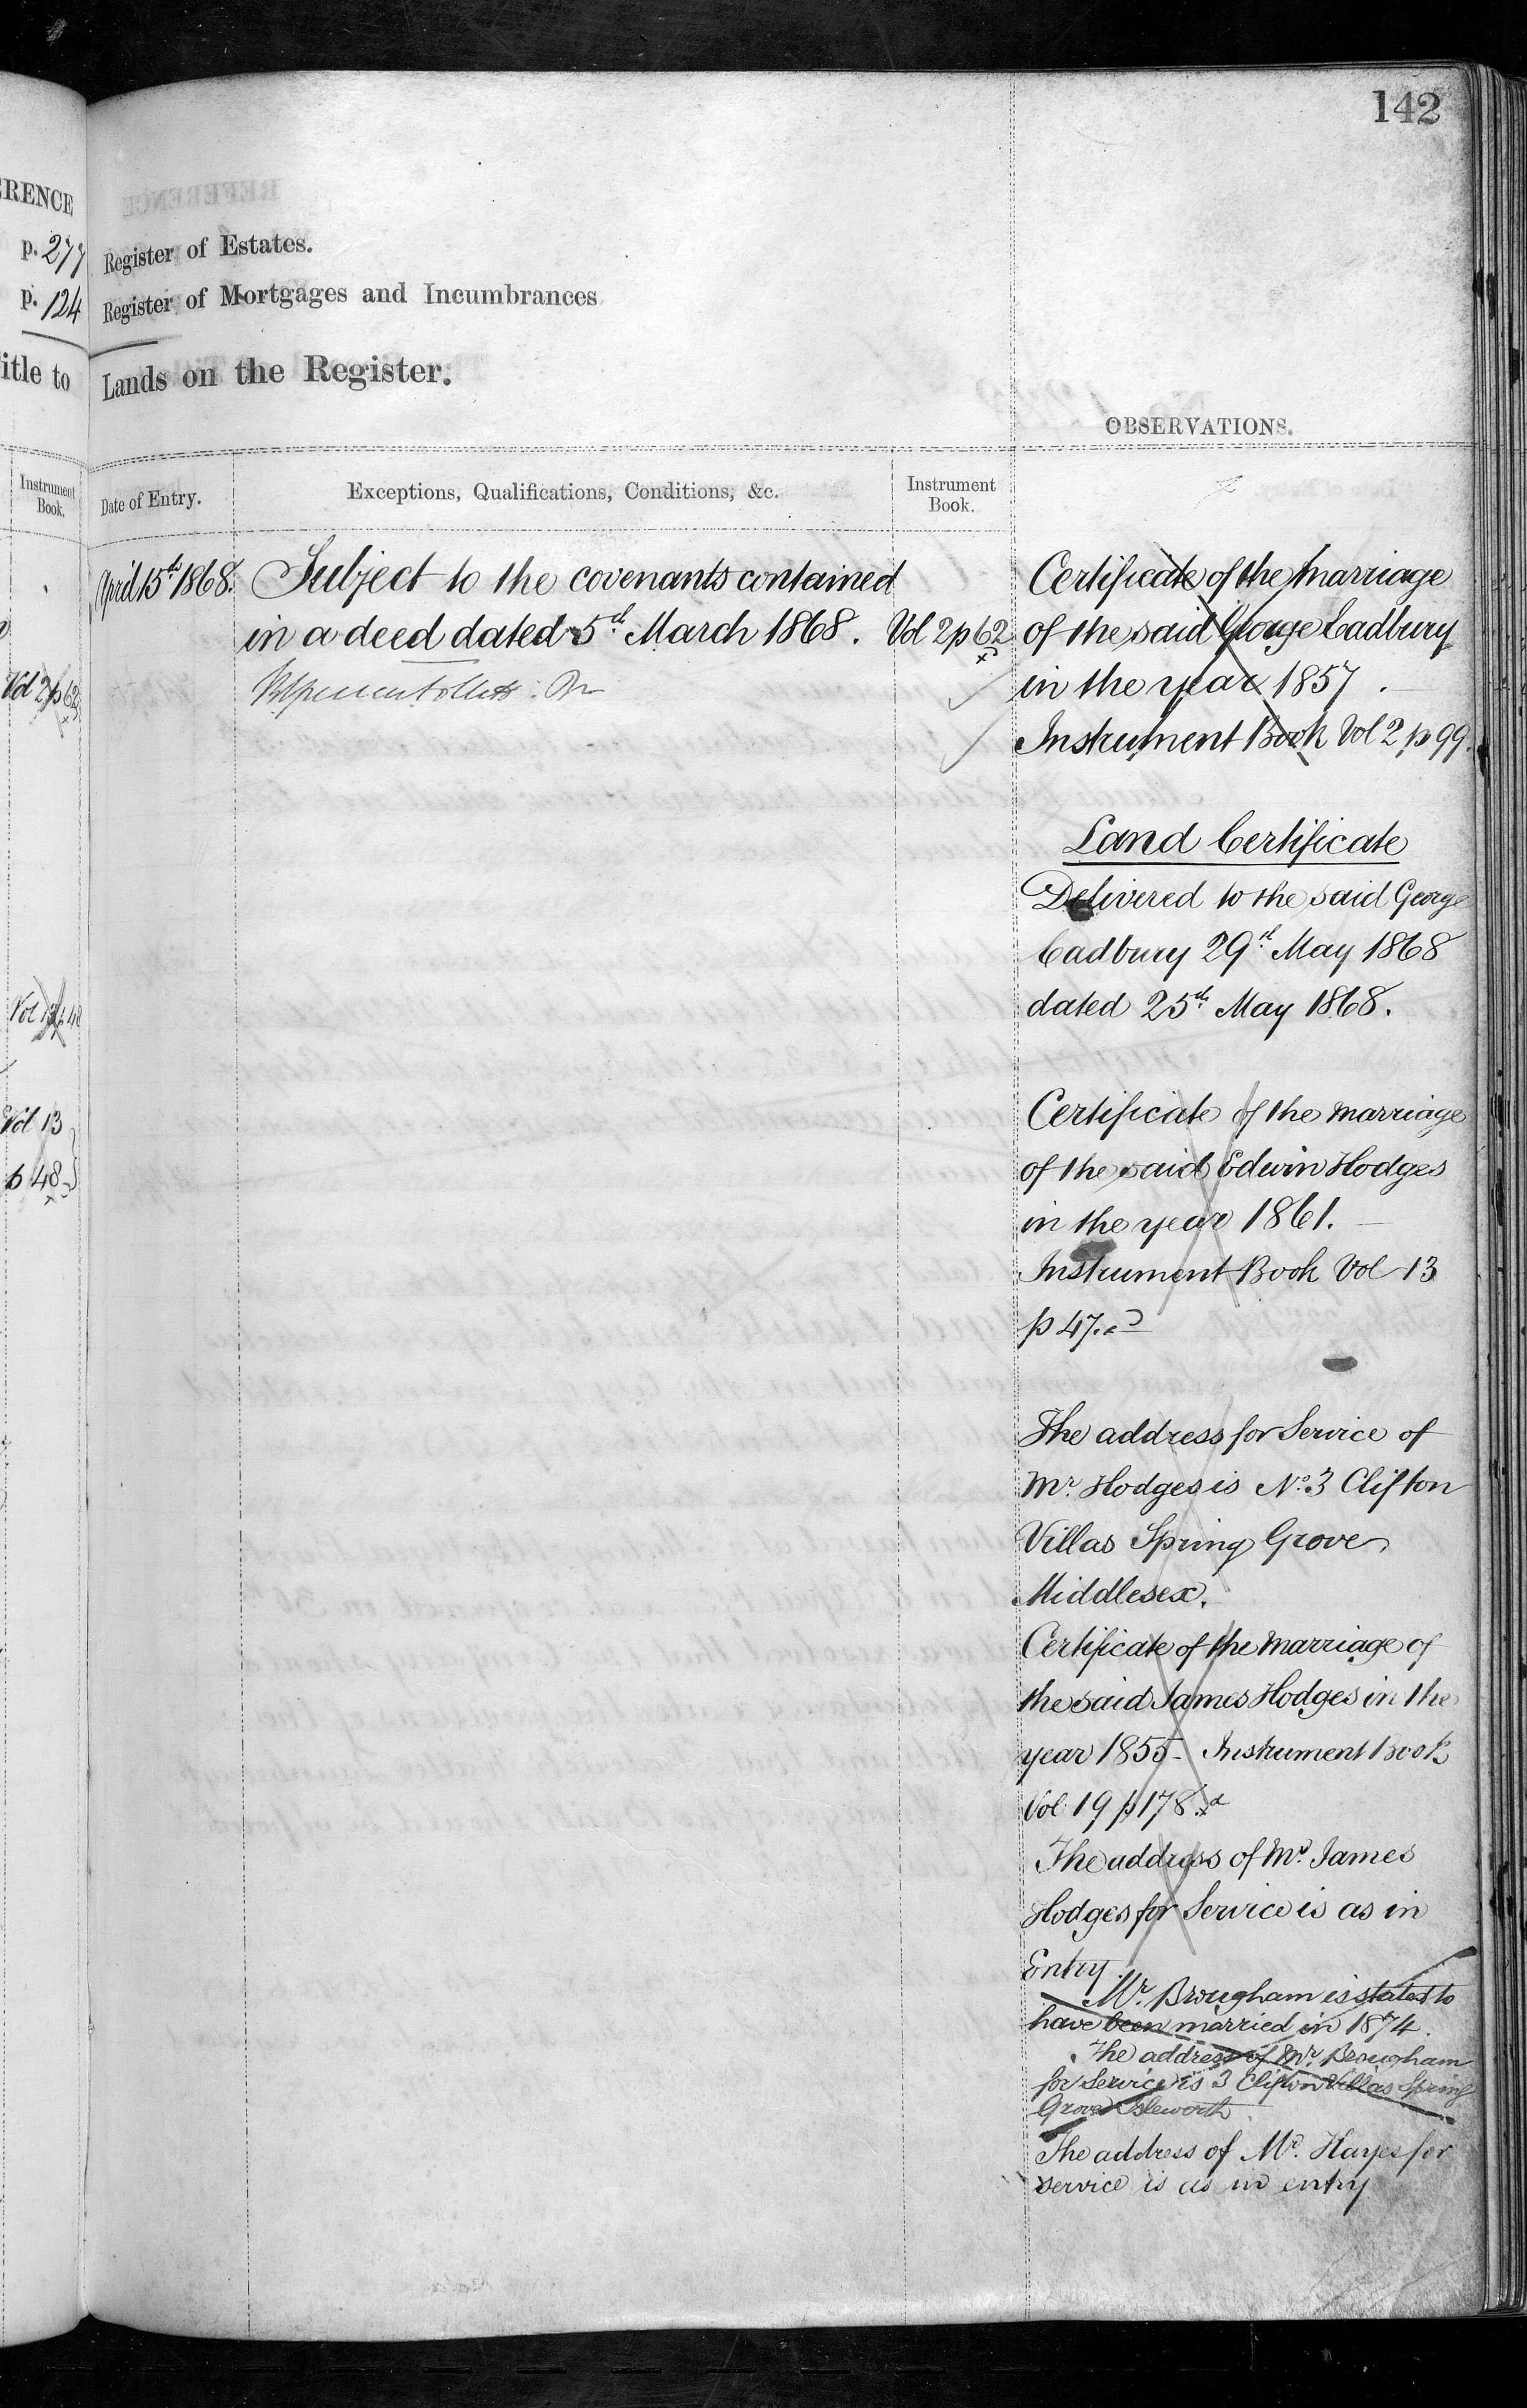 142
ERENCE
p. 277
p. 124
itle to
Instrument
Book.
Vol 2 p 62
Vol 13 p 48
Vol 13
p 48
Register of Estates.
Register of Mortgages and Incumbrances
Lands on the Register.
OBSERVATIONS.
Date of Entry.
Exceptions, Qualifications, Conditions, &c.
Instrument
Book.
April 15th 1868.
Subject to the covenants contained
in a deed dated 5th March 1868. Vol 2 p 62
Certificate of the Marriage
of the said George Cadbury
in the year 1857.
Instrument Book Vol 2 p 99.
Land Certificate
Delivered to the said George
Cadbury 29th May 1868
dated 25th May 1868.
Certificate of the marriage
of the said Edwin Hodges
in the year 1861.
Instrument Book Vol 13
p 47.
The address for Service of
Mr. Hodges is No. 3 Clifton
Villas Spring Grove
Middlesex.
Certificate of the Marriage of
the said James Hodges in the
year 1855 - Instrument Book
Vol 19 p 178.
The address of Mr. James
Hodges for Service is as in
Entry.
Mr. Brougham is stated to
have been married in 1874.
The address of Mr. Brougham
for Service is 3 Clifton Villas Spring
Grove Isleworth
The address of Mr. Hayes for
service is as in entry